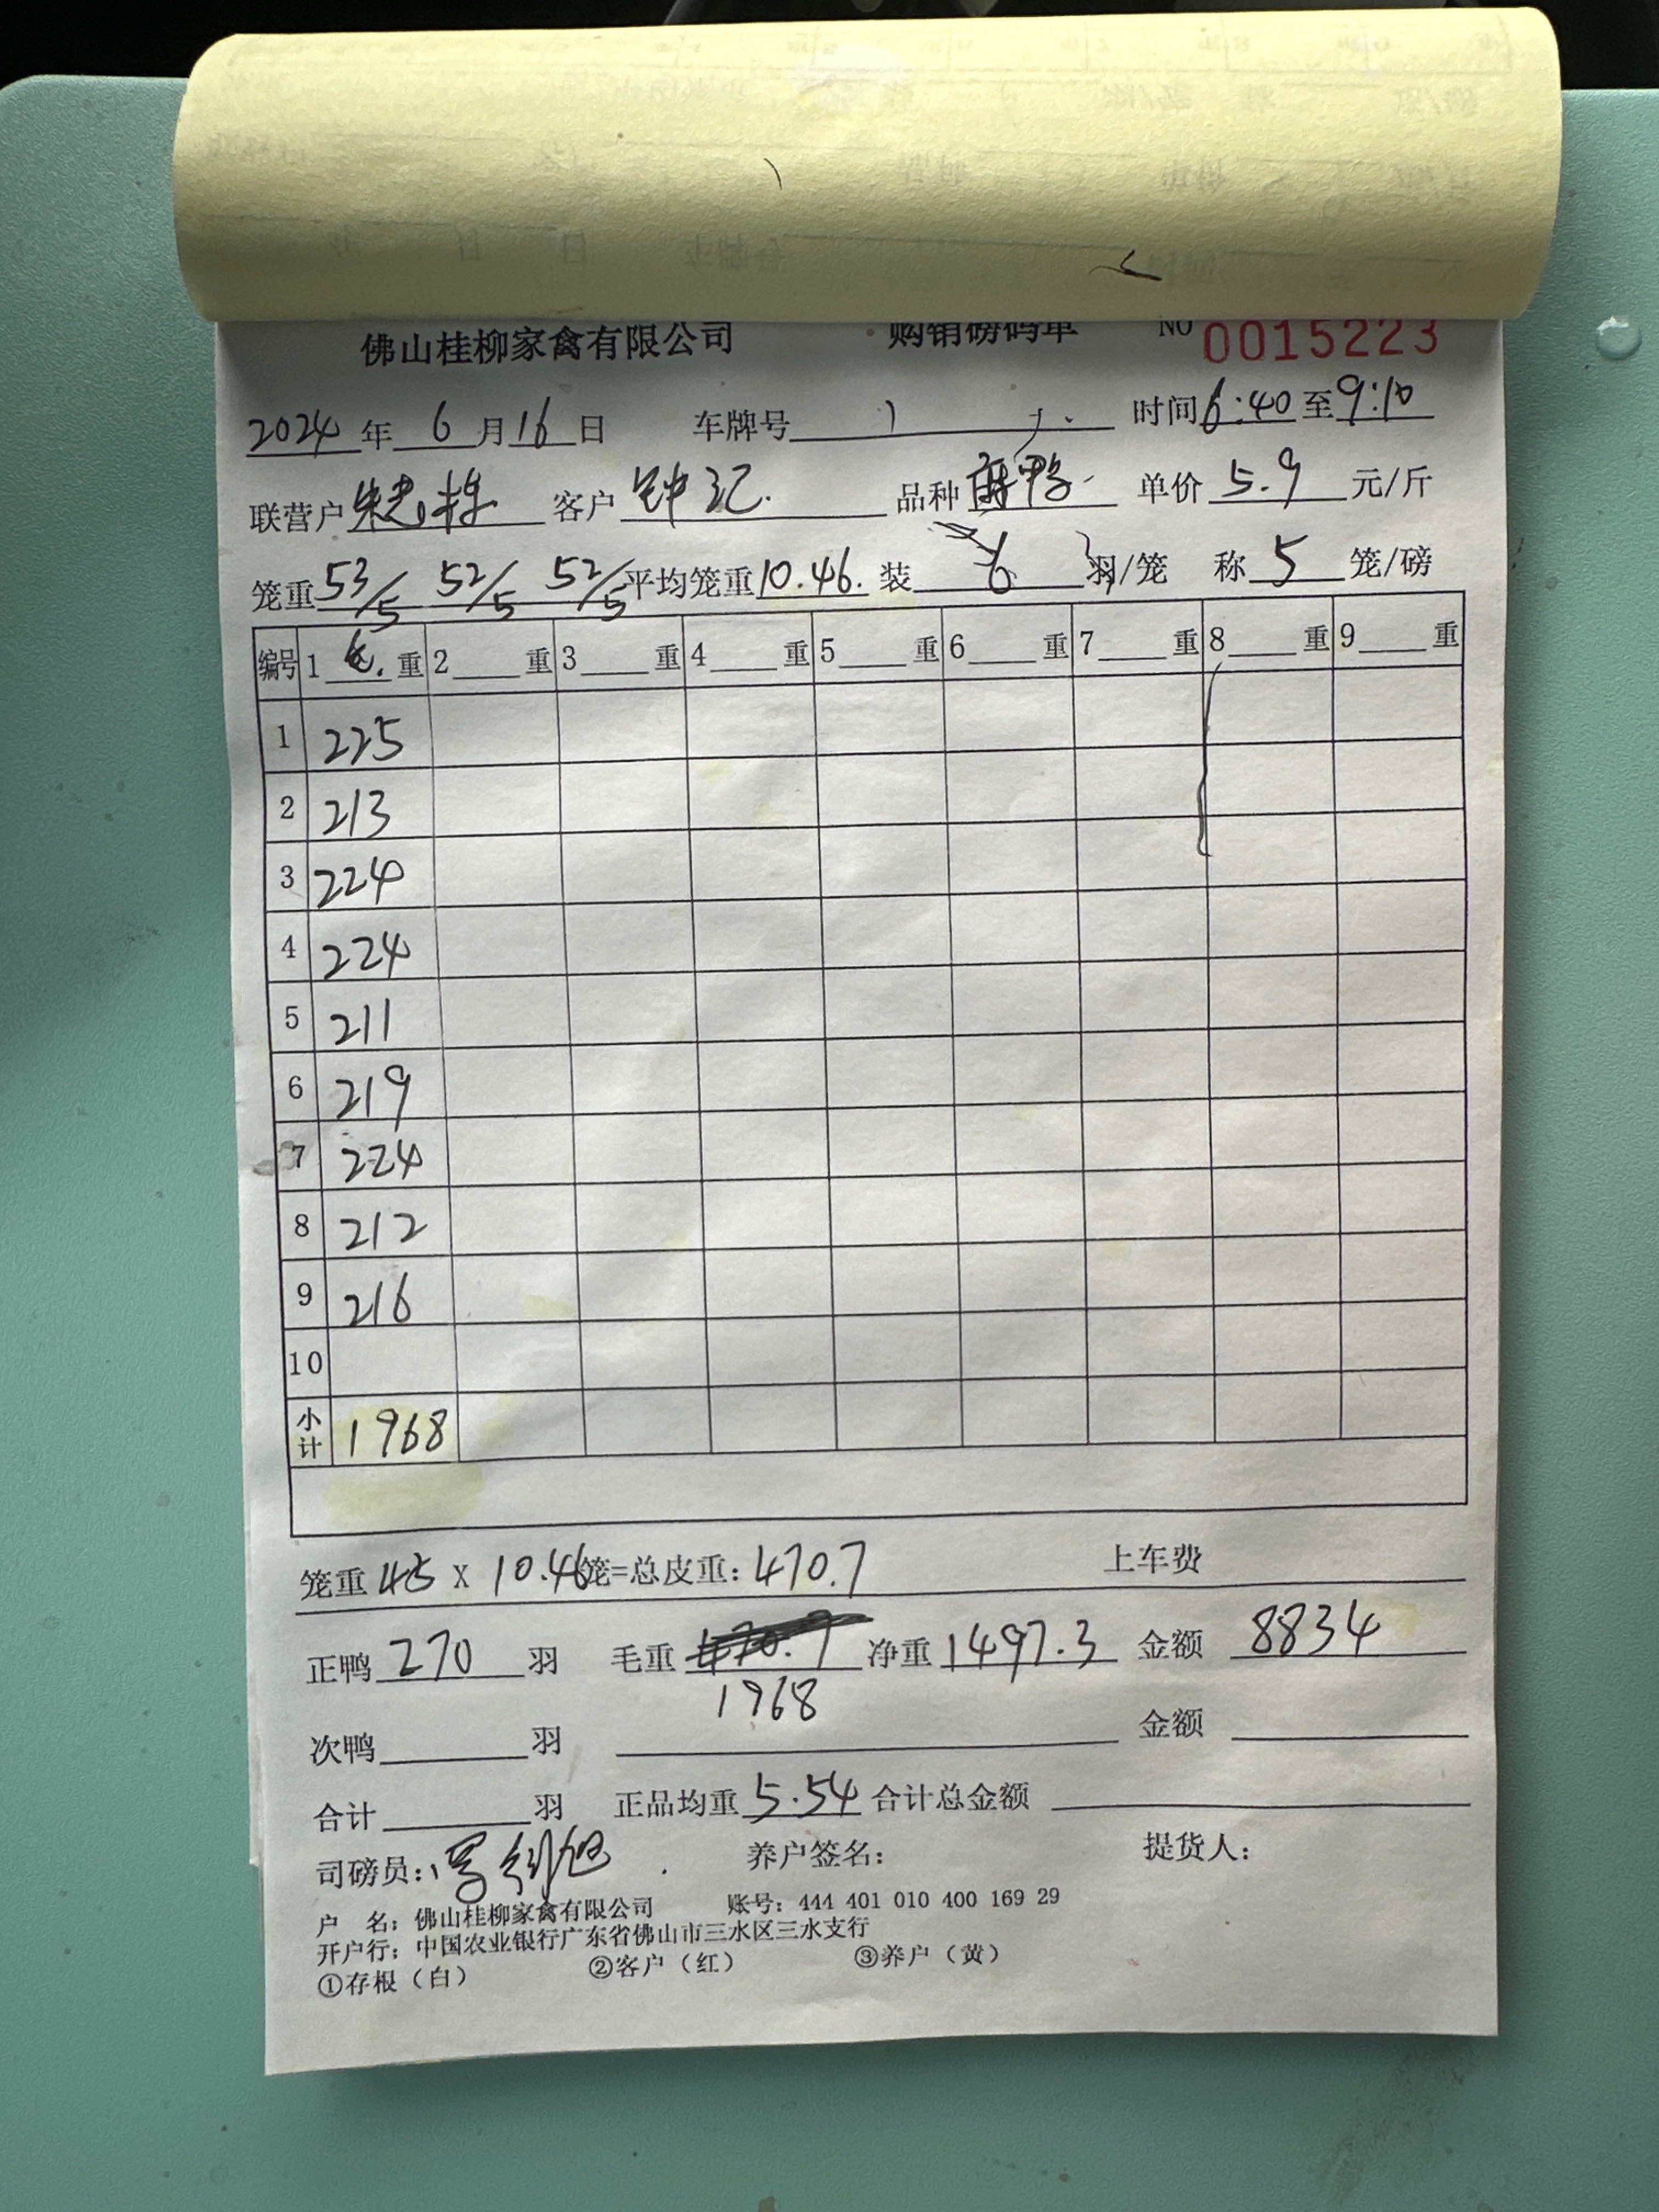 佛山桂柳家禽有限公司 购销磅码单 NO 0015223
2024 年 6 月 16 日 车牌号 时间 6:40 至 9:10
联营户 客户 钟记. 品种 麻鸭 单价 5.9 元/斤
笼重 53/5 52/5 52/5 平均笼重 10.46. 装 6 羽/笼 称 5 笼/磅
编号 1 重 2 重 3 重 4 重 5 重 6 重 7 重 8 重 9 重
1 225
2 213
3 224
4 224
5 211
6 219
7 224
8 212
9 216
10
小计 1968
笼重 45 X 10.46 笼=总皮重: 470.7 上车费
正鸭 270 羽 毛重 净重 1497.3 金额 8834
1968
次鸭 羽 金额
合计 羽 正品均重 5.54 合计总金额
司磅员: 养户签名: 提货人:
户 名: 佛山桂柳家禽有限公司 账号: 444 401 010 400 169 29
开户行: 中国农业银行广东省佛山市三水区三水支行
①存根（白） ②客户（红） ③养户（黄）